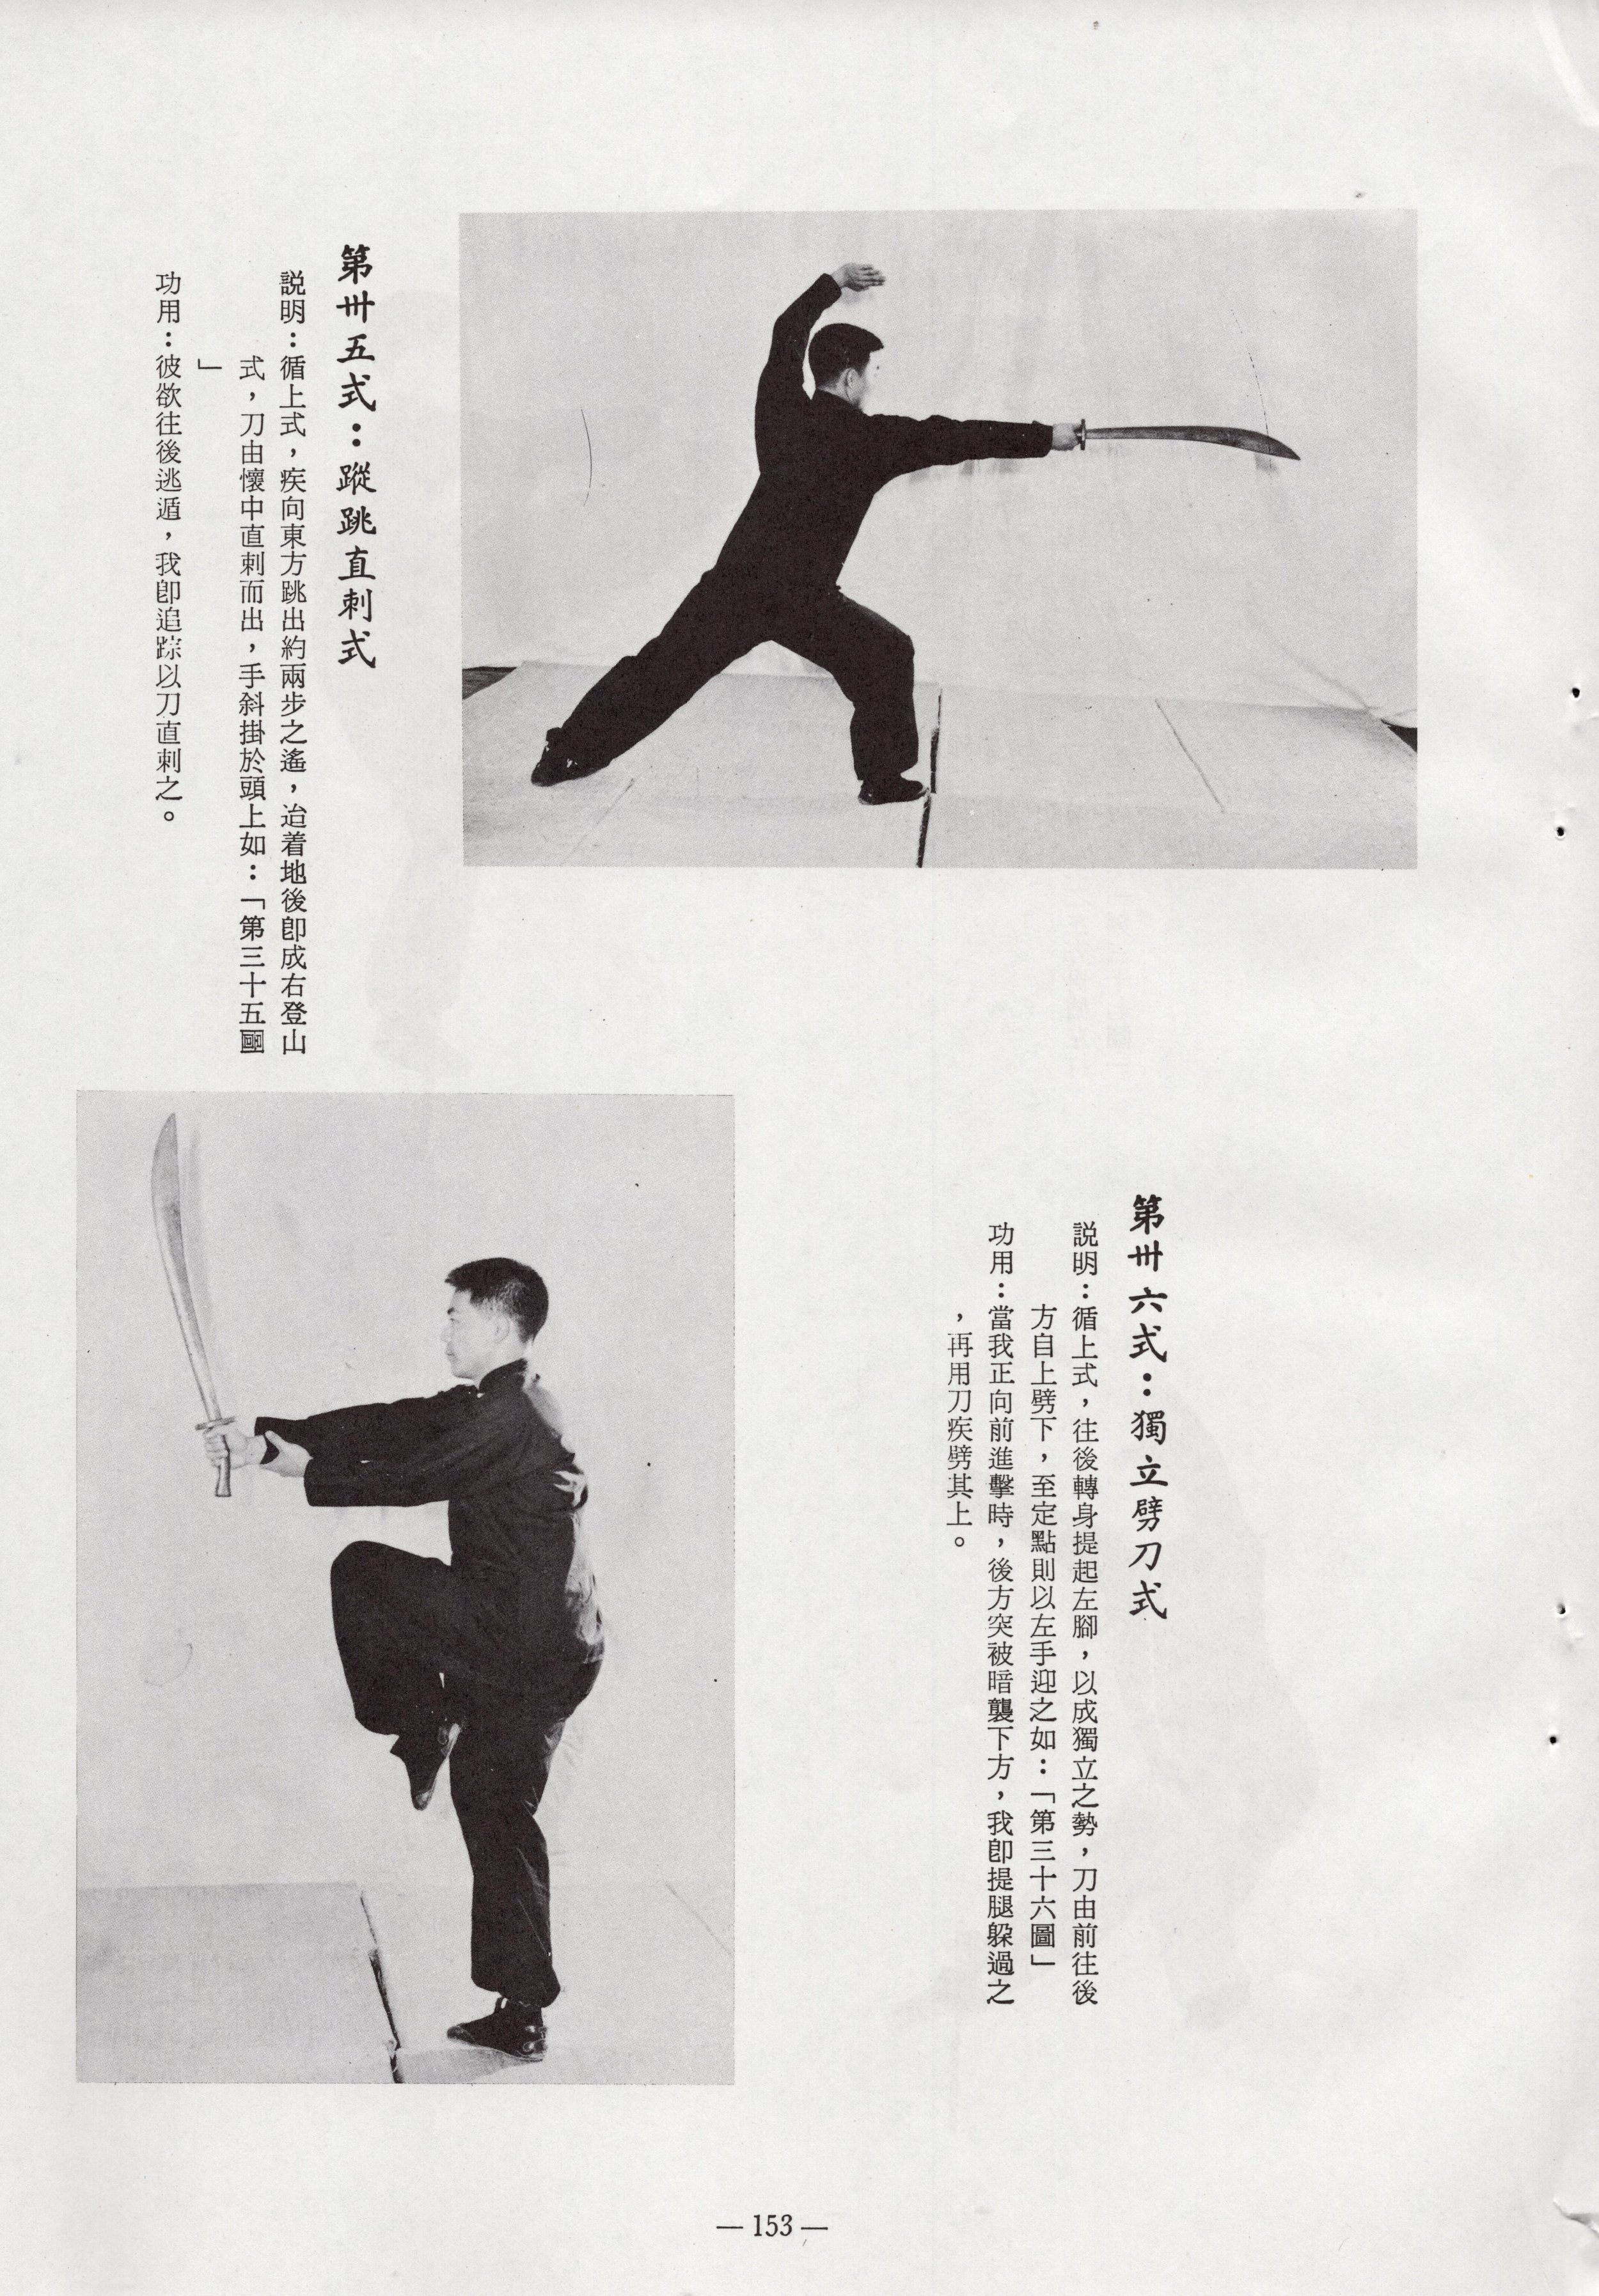 第卅五式：蹤跳直刺式
説明：循上式，疾向東方跳出約兩步之遙，迨着地後卽成右登山
式，刀由懷中直刺而出，手斜掛於頭上如：「第三十五圖
」
功用：彼欲往後逃遁，我卽追踪以刀直刺之。
第卅六式：獨立劈刀式
説明：循上式，往後轉身提起左腳，以成獨立之勢，刀由前往後
方自上劈下，至定點則以左手迎之如：「第三十六圖」
功用：當我正向前進擊時，後方突被暗襲下方，我卽提腿躱過之
，再用刀疾劈其上。
— 153 —